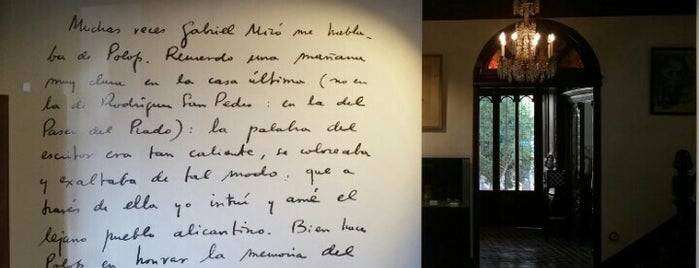 Muchas veces Gabriel Miró me habla-
ba de Polop. Recuerdo una mañana
muy clara en la casa última (no en
la de Rodríguez San Pedro: en la del
Paseo del Prado): la palabra del
escritor era tan caliente, se coloreaba
y exaltaba de tal modo, que a
través de ella yo intuí y amé el
lejano pueblo alicantino. Bien hace
Polop en honrar la memoria del